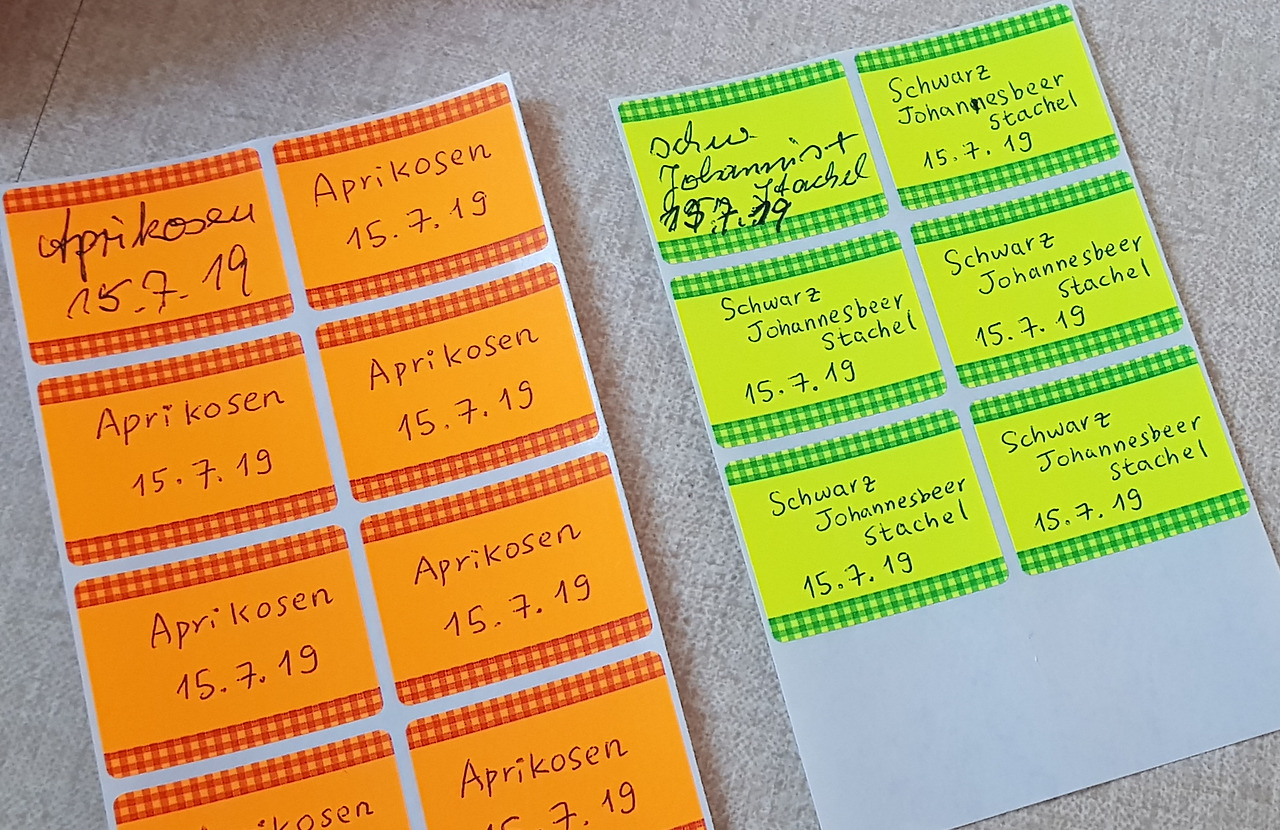 Aprikosen
15.7.19
Aprikosen
15.7.19
Aprikosen
15.7.19
Aprikosen
15.7.19
Aprikosen
15.7.19
Aprikosen
15.7.19
Aprikosen
Aprikosen
15.7.19
Schw.
Stachel
15.7.19
Schwarz
Johannesbeer
Stachel
15.7.19
Schwarz
Johannesbeer
Stachel
15.7.19
Schwarz
Johannesbeer
Stachel
15.7.19
Schwarz
Johannesbeer
Stachel
15.7.19
Schwarz
Johannesbeer
Stachel
15.7.19